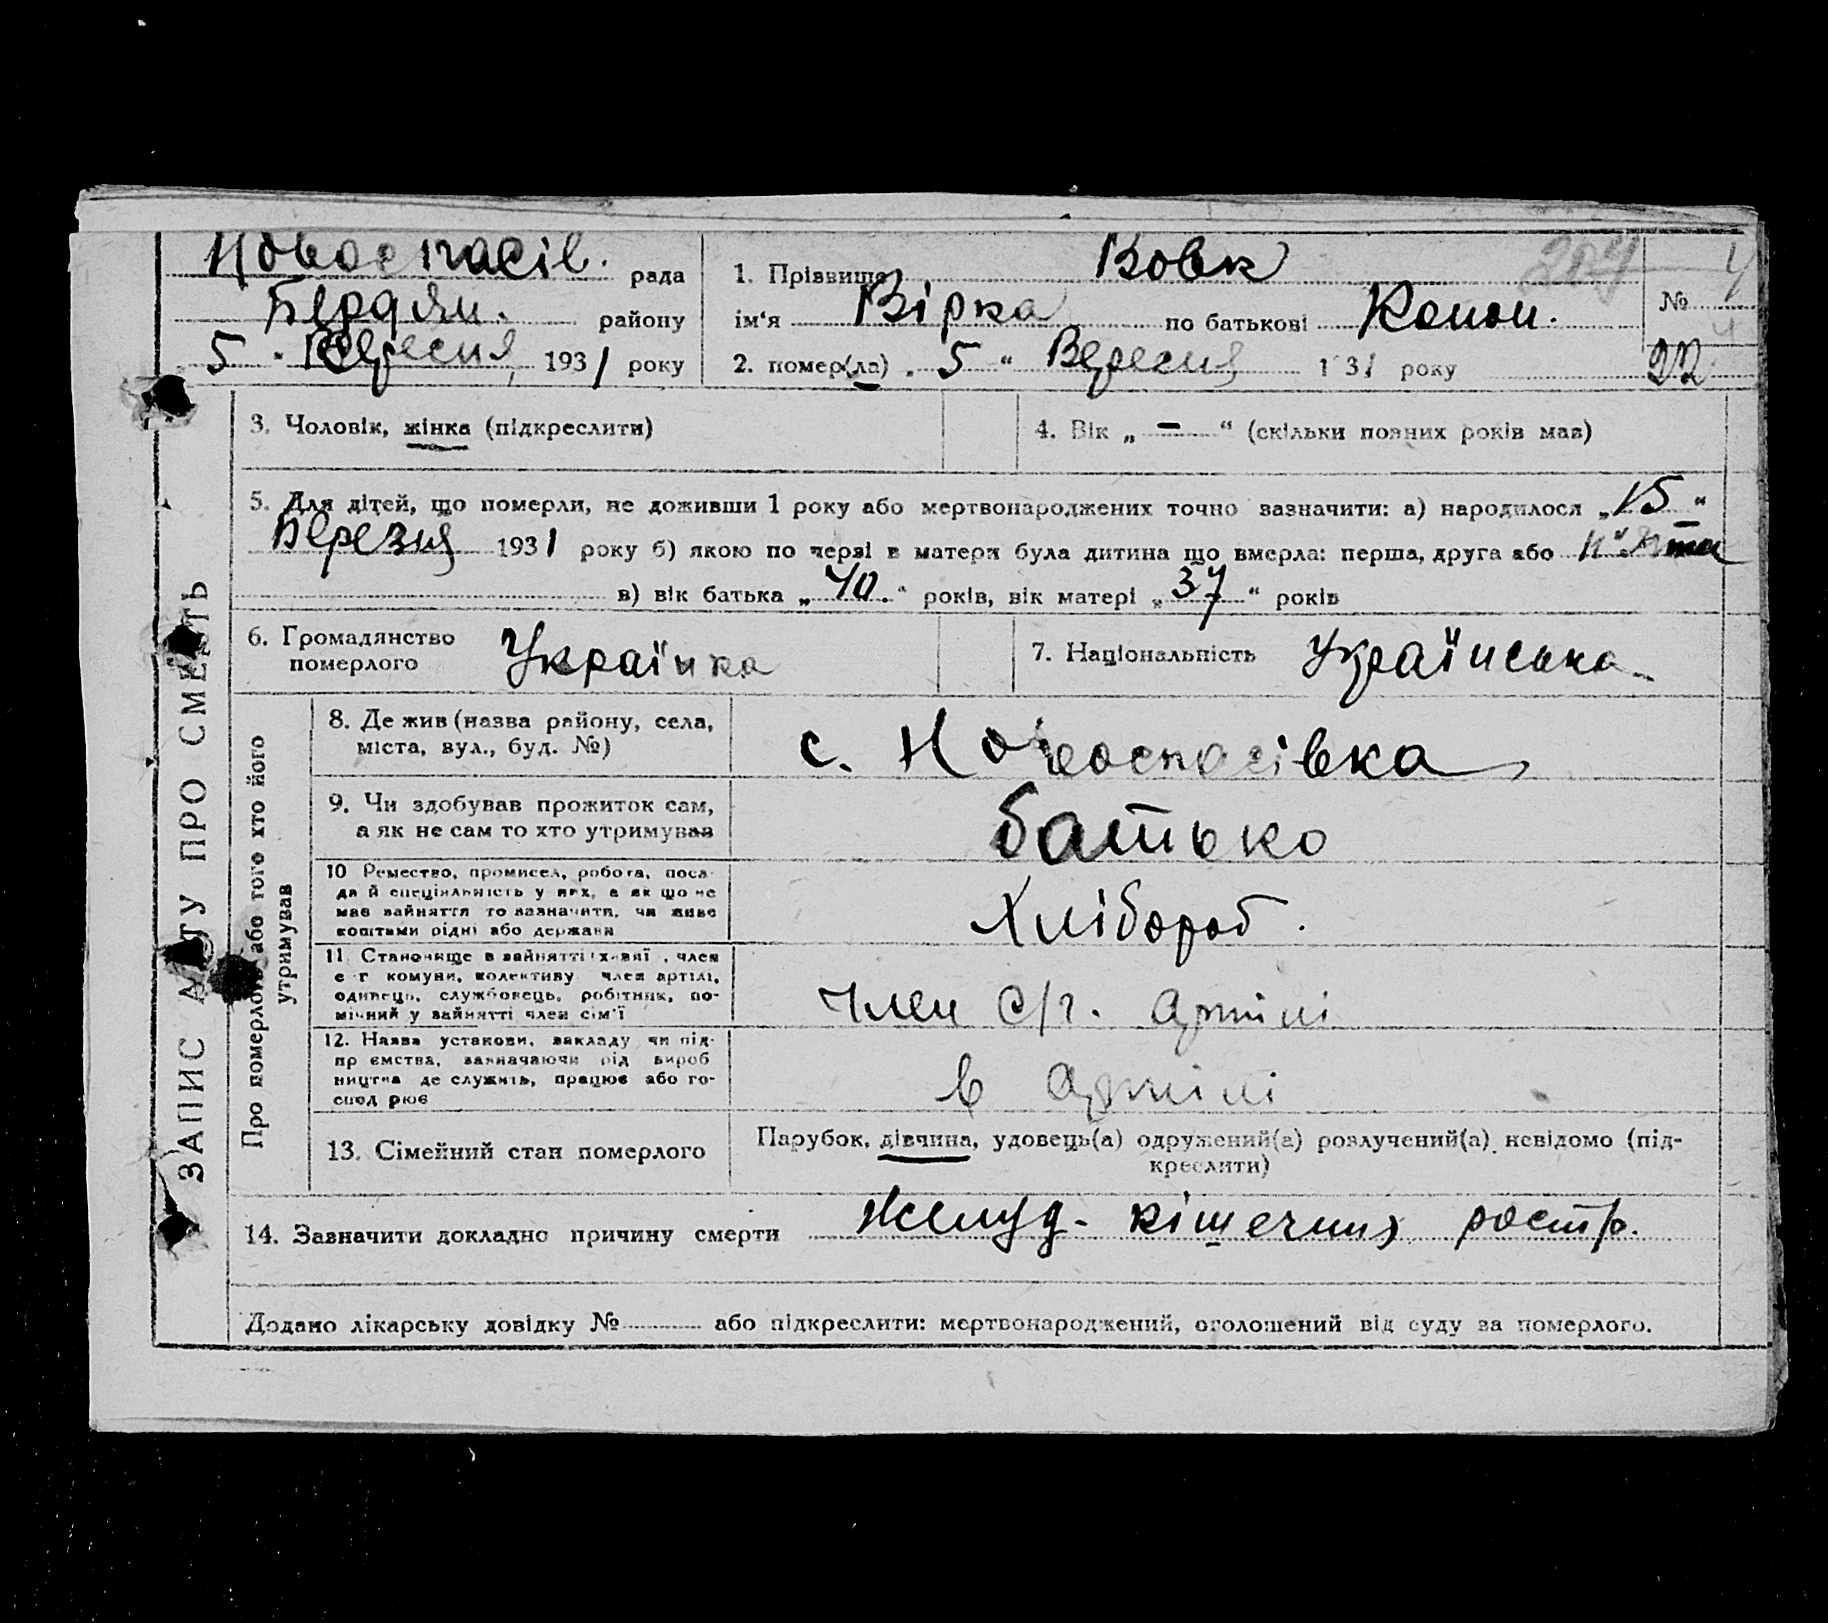 ЗАПИС АКТУ ПРО СМЕРТЬ
Новоспасів. рада
Бердян. району
5 Вересня 1931 року
1. Прізвище Вовк
ім'я Вірка по батькові Конон.
2. помер(ла) „ 5 “ Вересня 1931 року
№
22
3. Чоловік, жінка (підкреслити)
4. Вік „ — “ (скільки повних років мав)
5. Для дітей, що померли, не доживши 1 року або мертвонароджених точно зазначити: а) народилося „15“
Березня 1931 року б) якою по черзі в матери була дитина що вмерла: перша, друга або п'ята
в) вік батька „40.“ років, вік матері „37“ років
6. Громадянство
померлого Українка
7. Національність Українська
Про померлого або того хто його
утримував
8. Де жив (назва району, села,
міста, вул., буд. №)
с. Новоспасівка
9. Чи здобував прожиток сам,
а як не сам то хто утримував
батько
10 Ремество, промисел, робота, поса-
да й спеціяльність у них, а як що не
має зайняття то зазначити, чи живе
коштами рідні або держави
Хлібороб.
11. Становище в зайнятті , член
с-г комуни, колективу член артілі,
одинець, службовець, робітник, по-
мічний у зайнятті член сім'ї
Член с/г. артілі
12. Назва установи, закладу чи під-
пр ємства, зазначаючи рід вироб
ництва де служить, працює або го-
спод рює
в артілі
13. Сімейний стан померлого
Парубок, дівчина, удовець(а) одружений(а) розлучений(а) невідомо (під-
креслити)
14. Зазначити докладно причину смерти Желуд-кішечних растр.
Додано лікарську довідку № або підкреслити: мертвонароджений, оголошений від суду за померлого.